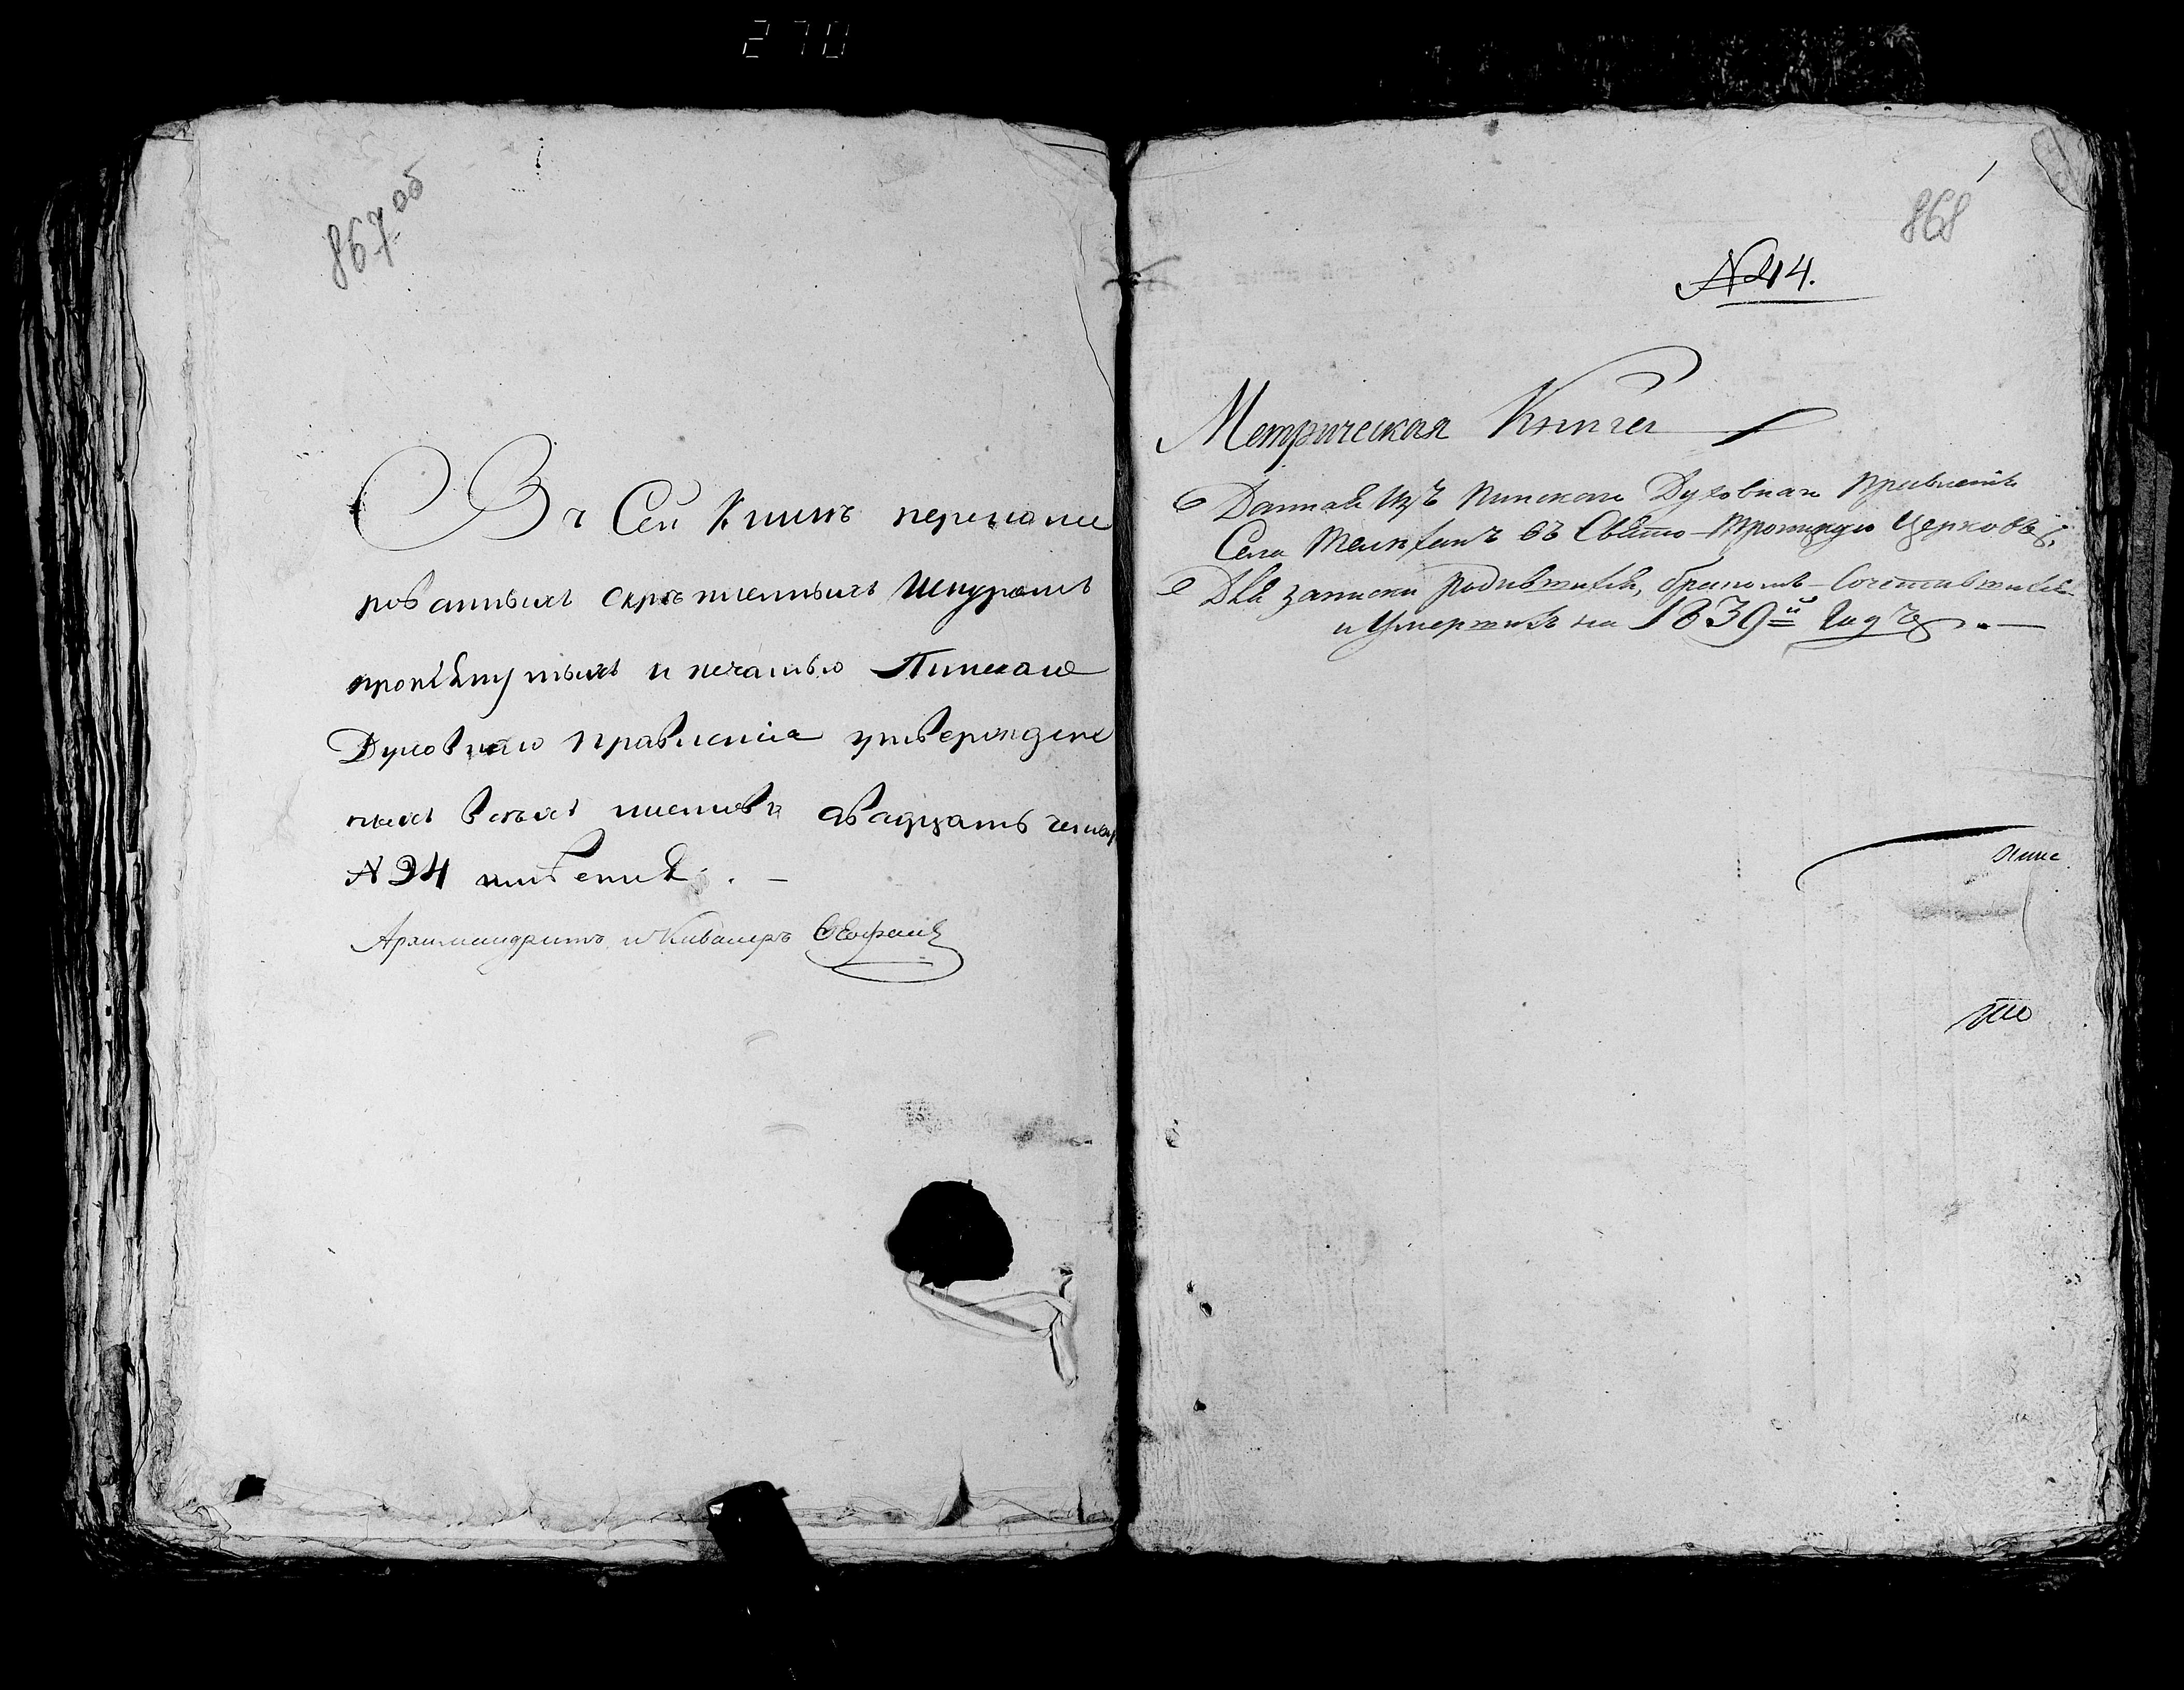 270
867 об
Въ Сей Книгѣ перенуме
рованныхъ скрѣпленныхъ Шнуромъ
продѣнутыхъ и печатью Пинскаго
Духовнаго Правленія утвержден
ныхъ всѣхъ листовъ двадцать четыр
№ 24 
Архимандритъ и Кавалеръ Ѳеофанъ
868
№ 14.
Метрическая Книга
Данная изъ Пинскаго Духовнаго Правленія
Села Телеханъ въ Свято-Троицкую Церковь,
Для записки родившихся, бракомъ-Сочетавшихся
и Умершихъ на 1839й Годъ
Пинс